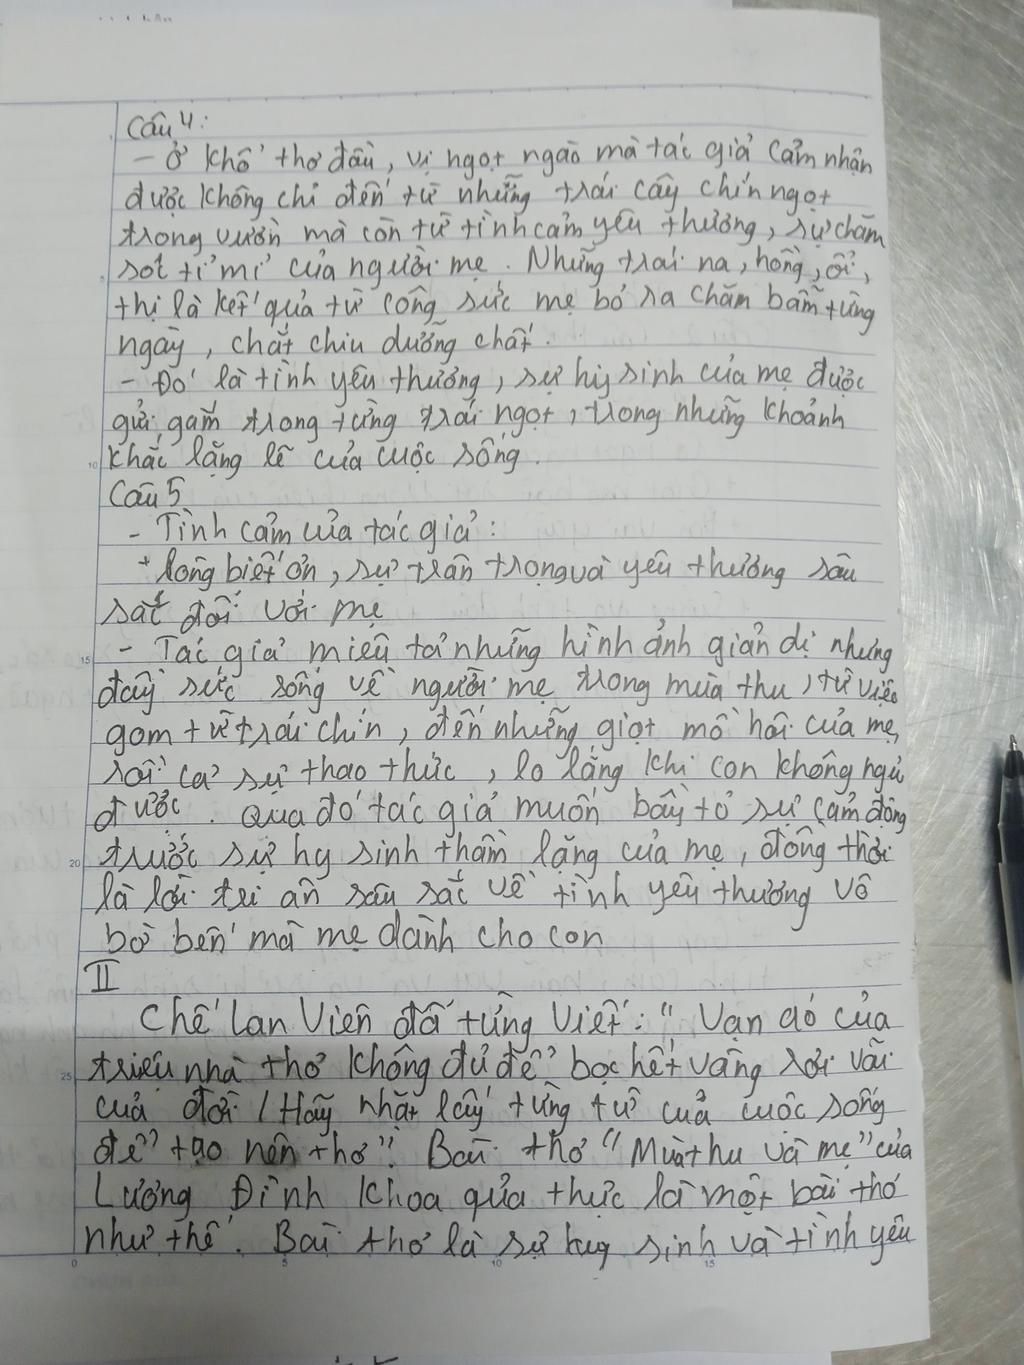 Câu 4:
– Ở khổ thơ đầu, vị ngọt ngào mà tác giả cảm nhận
được không chỉ đến từ những trái cây chín ngọt
trong vườn mà còn từ tình cảm yêu thương, sự chăm
sót tỉ mỉ của người mẹ. Những trái na, hồng, ổi,
thị là kết quả từ công sức mẹ bỏ ra chăm bẵm từng
ngày, chắt chiu dưỡng chất.
– Đó là tình yêu thương, sự hy sinh của mẹ được
gửi gắm trong từng trái ngọt, trong những khoảnh
khắc lặng lẽ của cuộc sống.
Câu 5
– Tình cảm của tác giả:
+ lòng biết ơn, sự trân trọng và yêu thương sâu
sắc đối với mẹ
– Tác giả miêu tả những hình ảnh giản dị nhưng
đầy sức sống về người mẹ trong mùa thu, từ việc
gom từ trái chín, đến những giọt mồ hôi của mẹ,
rồi cả sự thao thức, lo lắng khi con không ngủ
được. Qua đó tác giả muốn bày tỏ sự cảm động
trước sự hy sinh thầm lặng của mẹ, đồng thời
là lời tri ân sâu sắc về tình yêu thương vô
bờ bến mà mẹ dành cho con
II
Chế Lan Viên đã từng viết: "Vạn áo của
triệu nhà thơ không đủ để bọc hết vàng rơi vãi
của đời / Hãy nhặt lấy từng từ của cuộc sống
để tạo nên thơ". Bài thơ "Mùa thu và mẹ" của
Lương Đình Khoa quả thực là một bài thơ
như thế. Bài thơ là sự hy sinh và tình yêu